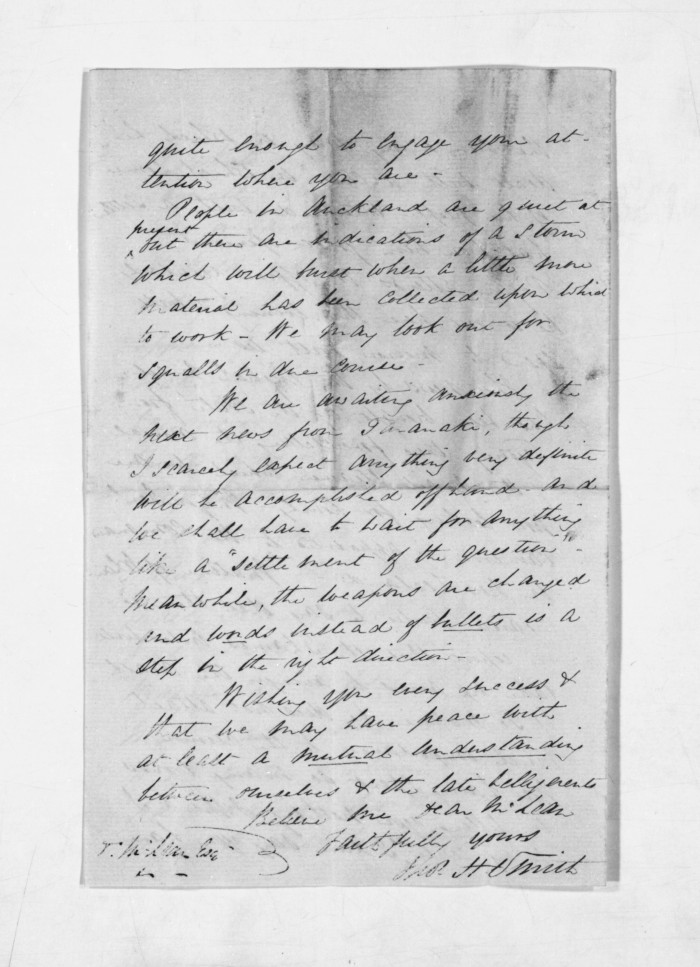 quite enough to engage your at-
tention where you are -
People in Auckland are quiet at
present
but there are indications of a storm
which will burst when a little more
material has been collected upon which
to work - We may look out for
squalls in due course -
We are awaiting anxiously the
next news from Taranaki, though
I scarcely expect anything very definite
will be accomplished off hand - and
we shall have to wait for anything
like a "settlement of the question" -
Meanwhile, the weapons are changed
and words instead of bullets is a
step in the right direction -
Wishing you every success &
that we may have peace with
at least a mutual understanding
between ourselves & the late belligerents
Believe me dear McLean
Faithfully yours
Thos. H Smith
D. McLean Esq